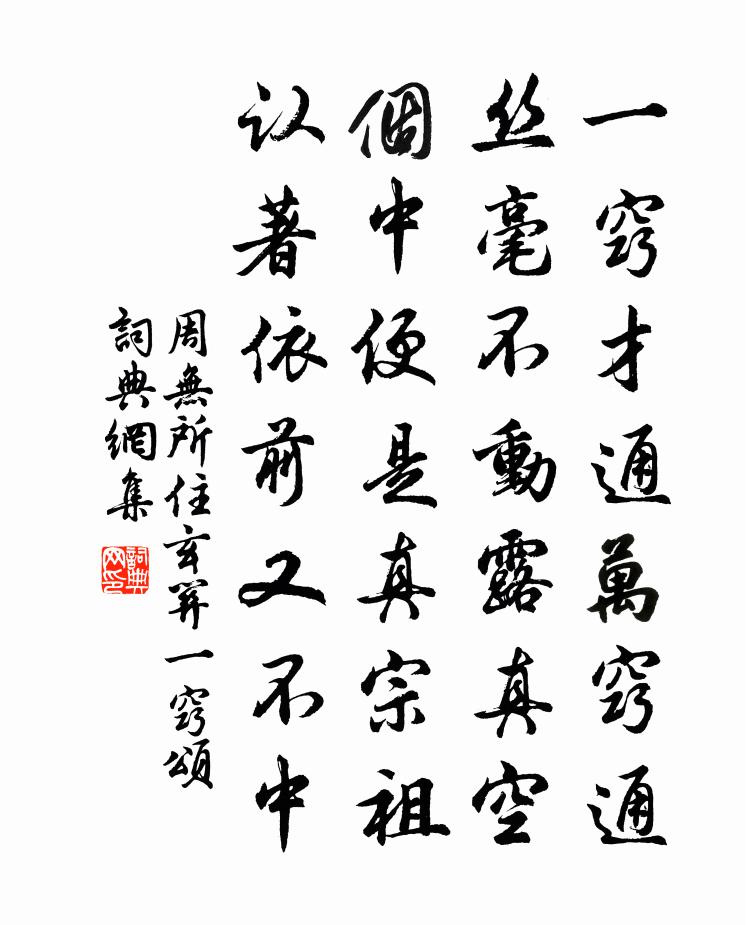 一窍才通萬窍通
丝毫不動露真空
個中便是真宗祖
认著依前又不中
周無所住玄関一窍頌
詞典網集
詞典网印